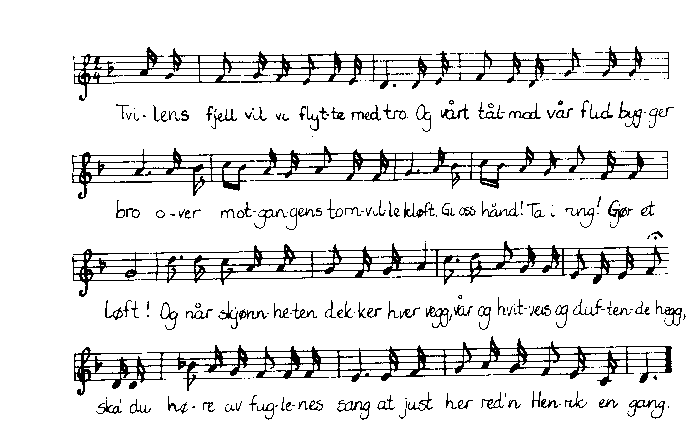 Tvi-lens fjell vil vi flyt-te med tro. Og vårt tål-mod vår flid byg-ger
bro o-ver mot-gan-gens torn-vil-le kløft. Gi oss hånd! Ta i ring! Gjør et
løft! Og når skjønn-he-ten dek-ker hver vegg, vår og hvit-veis og duf-ten-de hegg,
ska' du hø-re av fug-le-nes sang at just her red'n Hen-rik en gang.